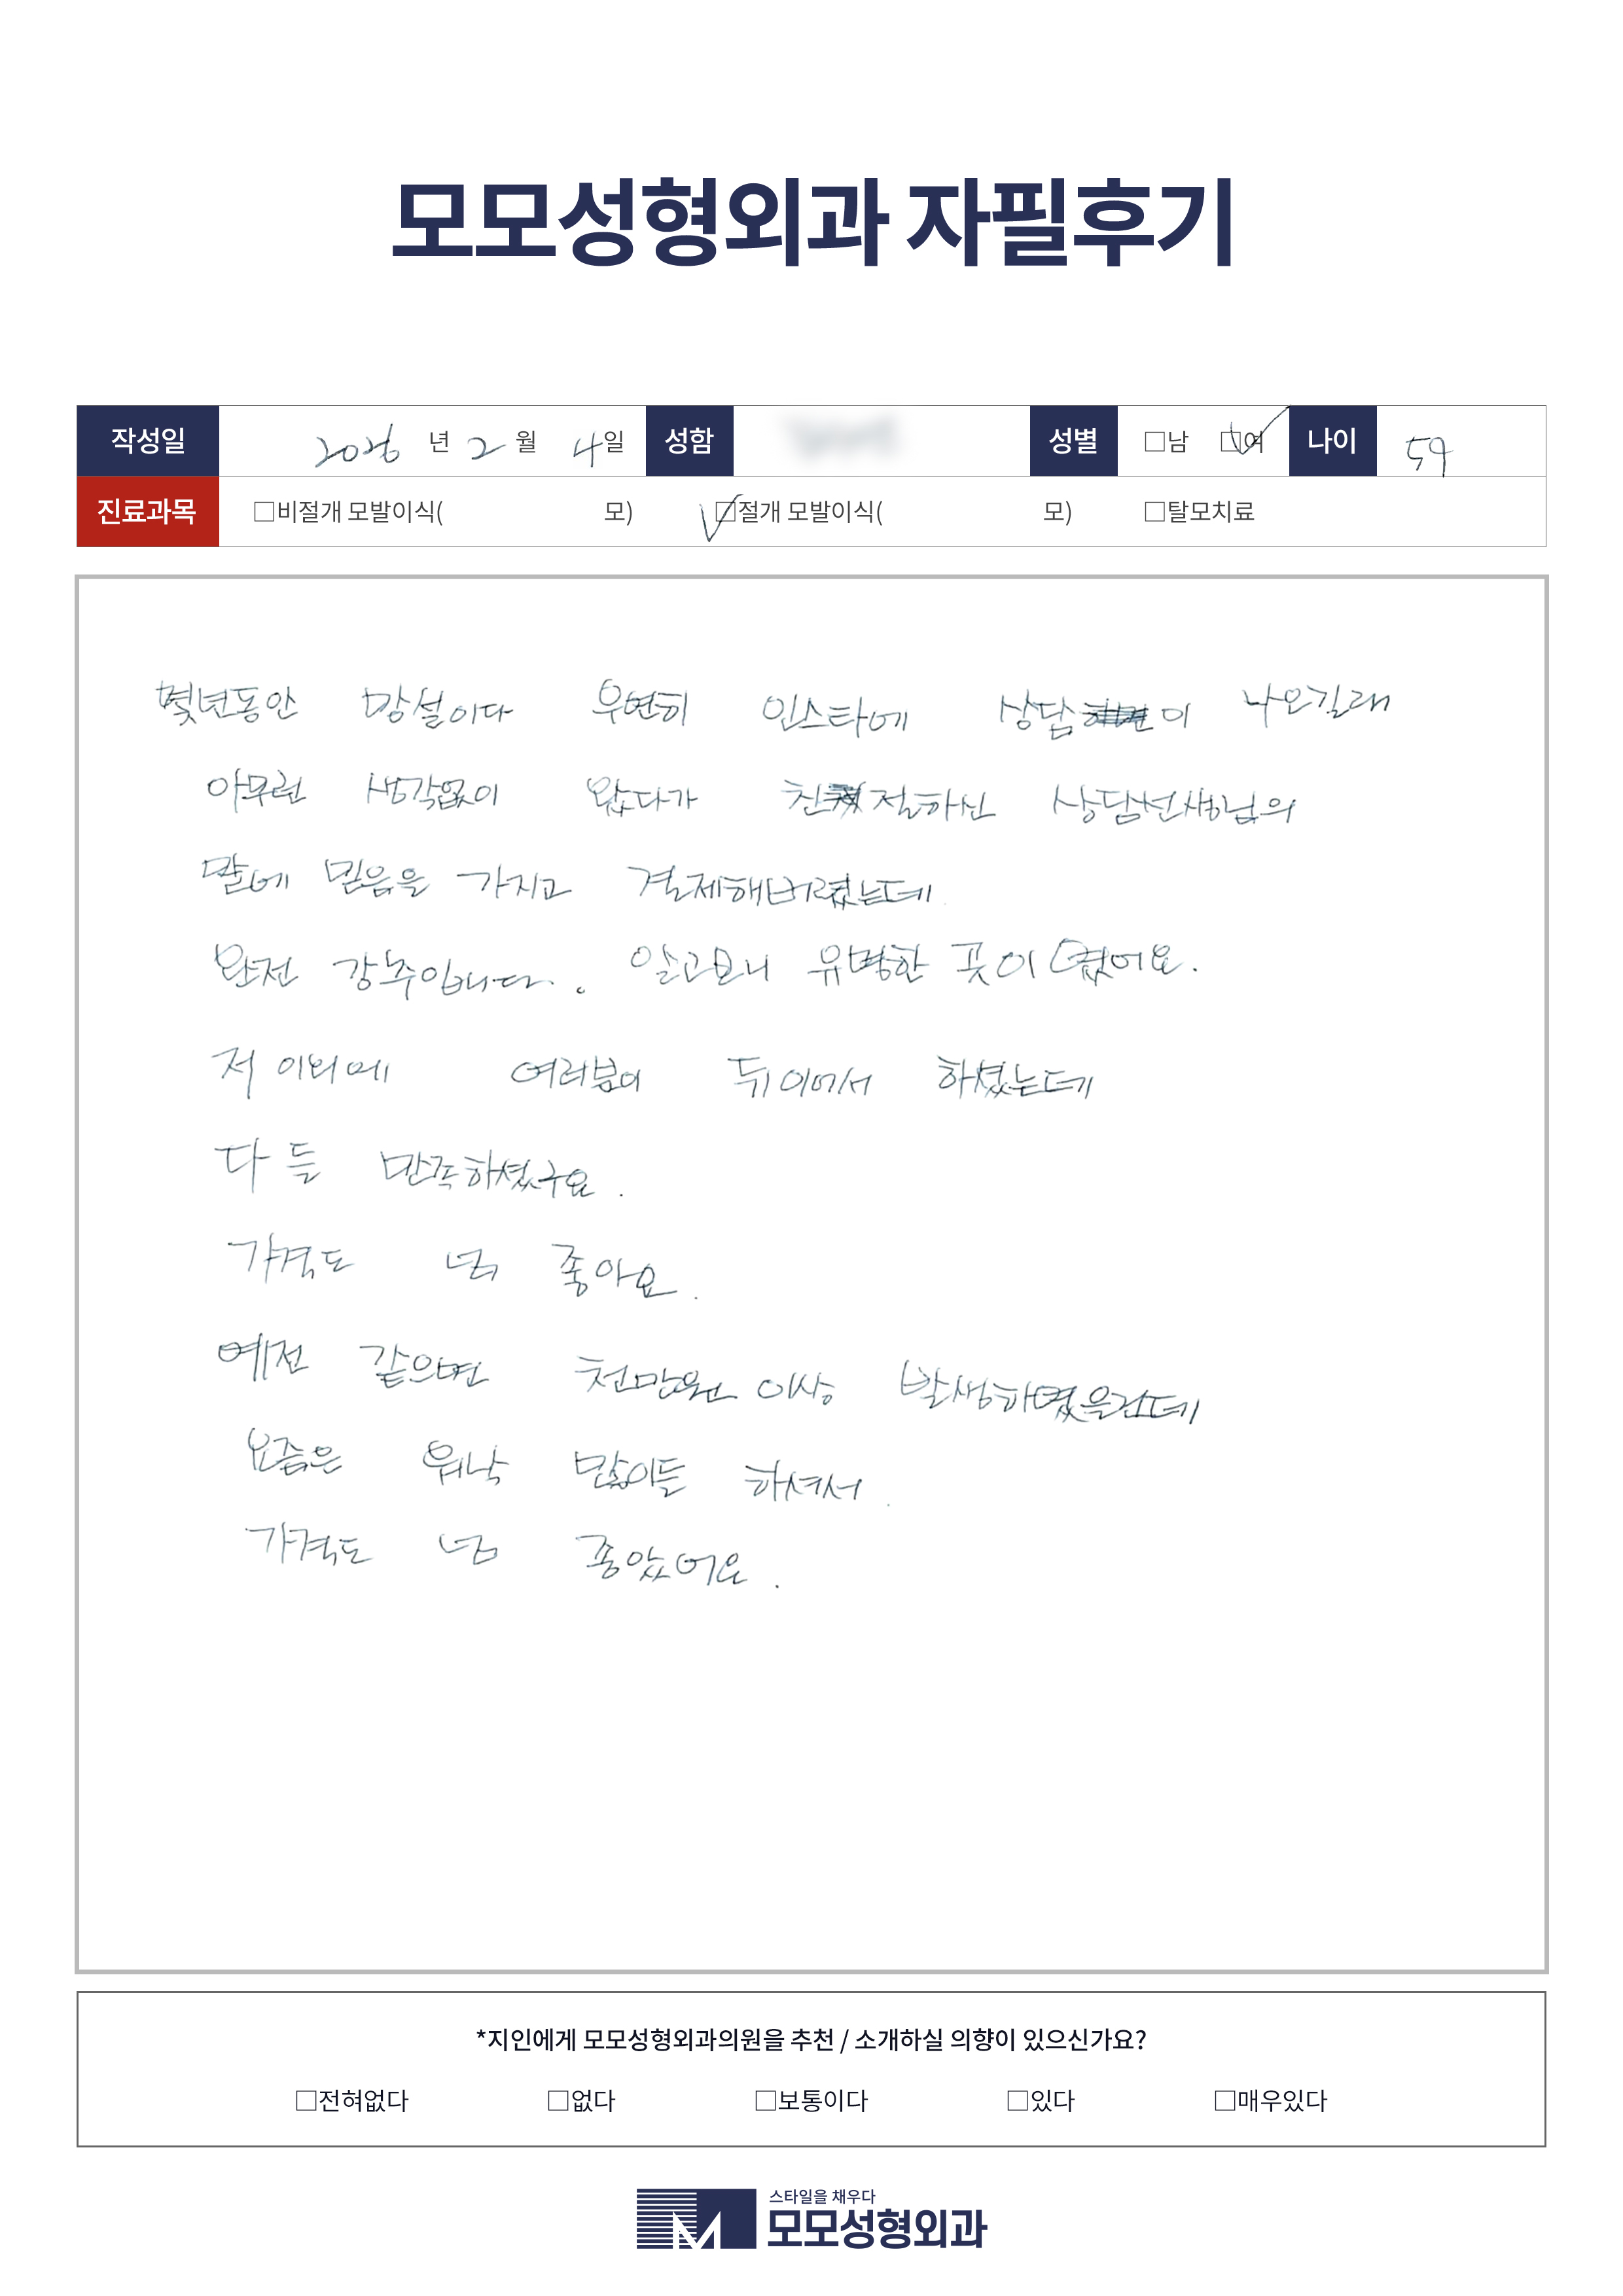 모모성형외과 자필후기
작성일 2026 년 2 월 4 일 성함 성별 □남 ☑여 나이 59
진료과목 □비절개 모발이식( 모) ☑절개 모발이식( 모) □탈모치료
몇년동안 망설이다 우연히 인스타에 상담이 나오길래
아무런 생각없이 왔다가 친절하신 상담선생님의
말에 믿음을 가지고 결제해버렸는데
완전 강추입니다. 알고보니 유명한 곳이였어요.
저 이외에 여러분이 뒤이어서 하셨는데
다들 만족하셨구요.
가격도 넘 좋아요.
예전 같으면 천만원 이상 발생하였을건데
요즘은 워낙 많이들 하셔서.
가격도 넘 좋았어요.
*지인에게 모모성형외과의원을 추천 / 소개하실 의향이 있으신가요?
□전혀없다 □없다 □보통이다 □있다 □매우있다
스타일을 채우다
모모성형외과